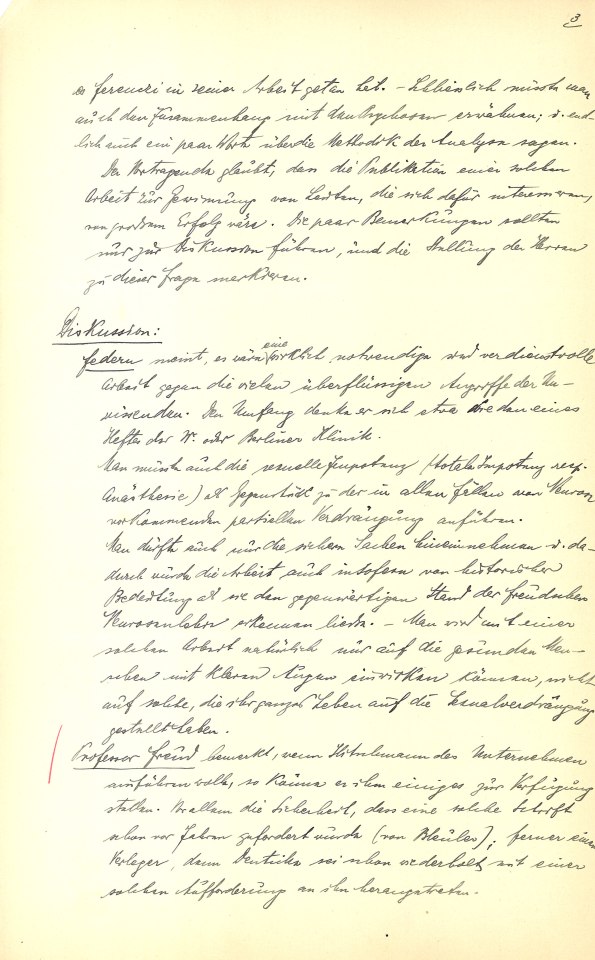 3
es Ferenczi in seiner Arbeit getan hat. – Schliesslich müsste man
auch den Zusammenhang mit den Psychosen erwähnen; u. end-
lich auch ein paar Worte über die Methodik der Analyse sagen.
Der Vortragende glaubt, dass die Publikation einer solchen
Arbeit zur Gewinnung von Leuten, die sich dafür interessieren,
von grossem Erfolg wäre. Die paar Bemerkungen sollten
nur zur Diskussion führen, und die Stellung der Herren
zu dieser Frage markieren.
Diskussion:
Federn meint, es wäre eine wirklich notwendige und verdienstvolle
Arbeit gegen die vielen überflüssigen Angriffe der Un-
wissenden. Den Umfang denke er sich etwa wie den eines
Heftes der W. oder Berliner Klinik.
Man müsste auch die sexuelle Impotenz (totale Impotenz resp.
Anästhesie) als Gegenstück zu der in allen Fällen von Neurose
vorkommenden partiellen Verdrängung anführen.
Man dürfte auch nur die sichern Sachen hineinnehmen u. da-
durch würde die Arbeit auch insofern von historischer
Bedeutung als sie den gegenwärtigen Stand der Freudschen
Neurosenlehre erkennen liesse. – Man wird mit einer
solchen Arbeit natürlich nur auf die gesunden Men-
schen mit klaren Augen einwirken können, nicht
auf solche, die ihr ganzes Leben auf die Sexualverdrängung
gestellt haben.
Professor Freud bemerkt, wenn Hitschmann das Unternehmen
ausführen wolle, so könne er ihm einiges zur Verfügung
stellen. Vor allem die Sicherheit, dass eine solche Schrift
schon vor Jahren gefordert wurde (von Bleuler); ferner einen
Verleger, denn Deuticke sei schon wiederholt mit einer
solchen Aufforderung an ihn herangetreten.